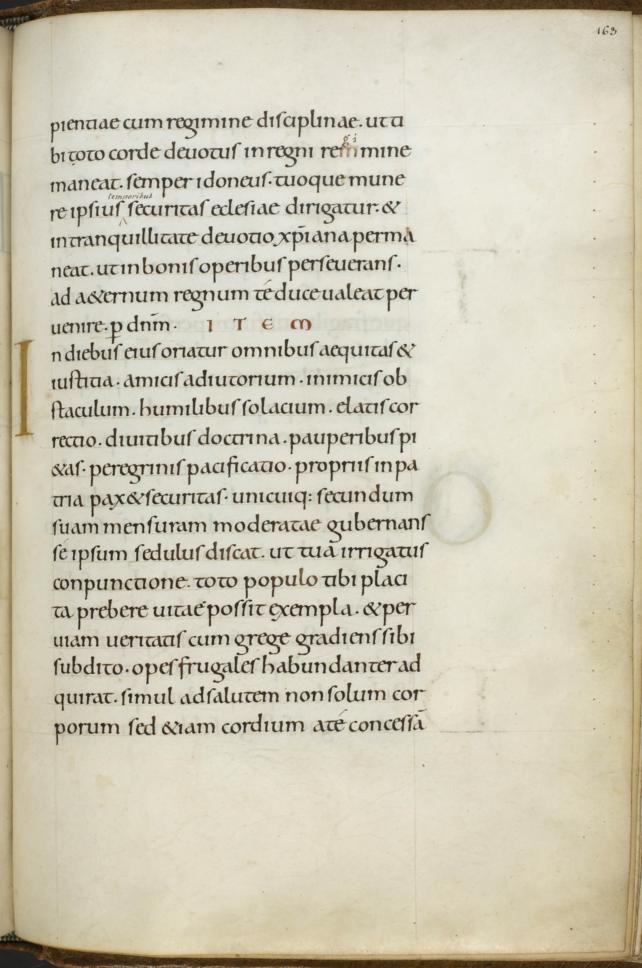 163
pientiae cum regimine disciplinae. ut ti
bi toto corde deuotus in regni regimine
maneat. semper idoneus. tuoque mune
re ipsius temporibus securitas eclesiae dirigatur. &
in tranquillitate deuotio xp̄iana permā
neat. ut in bonis operibus perseuerans.
ad a&ernum regnum té duce ualeat per
uenire. p̄ dn̄m. ITEM
In diebus eius oriatur omnibus aequitas &
iustitia. amicis adiutorium. inimicis ob
staculum. humilibus solacium. elatis cor
rectio. diuitibus doctrina. pauperibus pi
&as. peregrinis pacificatio. propriis in pa
tria pax & securitas. unicuiq: secundum
suam mensuram moderatae gubernans
sé ipsum sedulus discat. ut tuá irrigatus
conpunctione. toto populo tibi placi
ta prebere uitae possit exempla. & per
uiam ueritatis cum grege gradiens sibi
subdito. opes frugales habundanter ad
quirat. simul ad salutem non solum cor
porum sed &iam cordium a té concessā